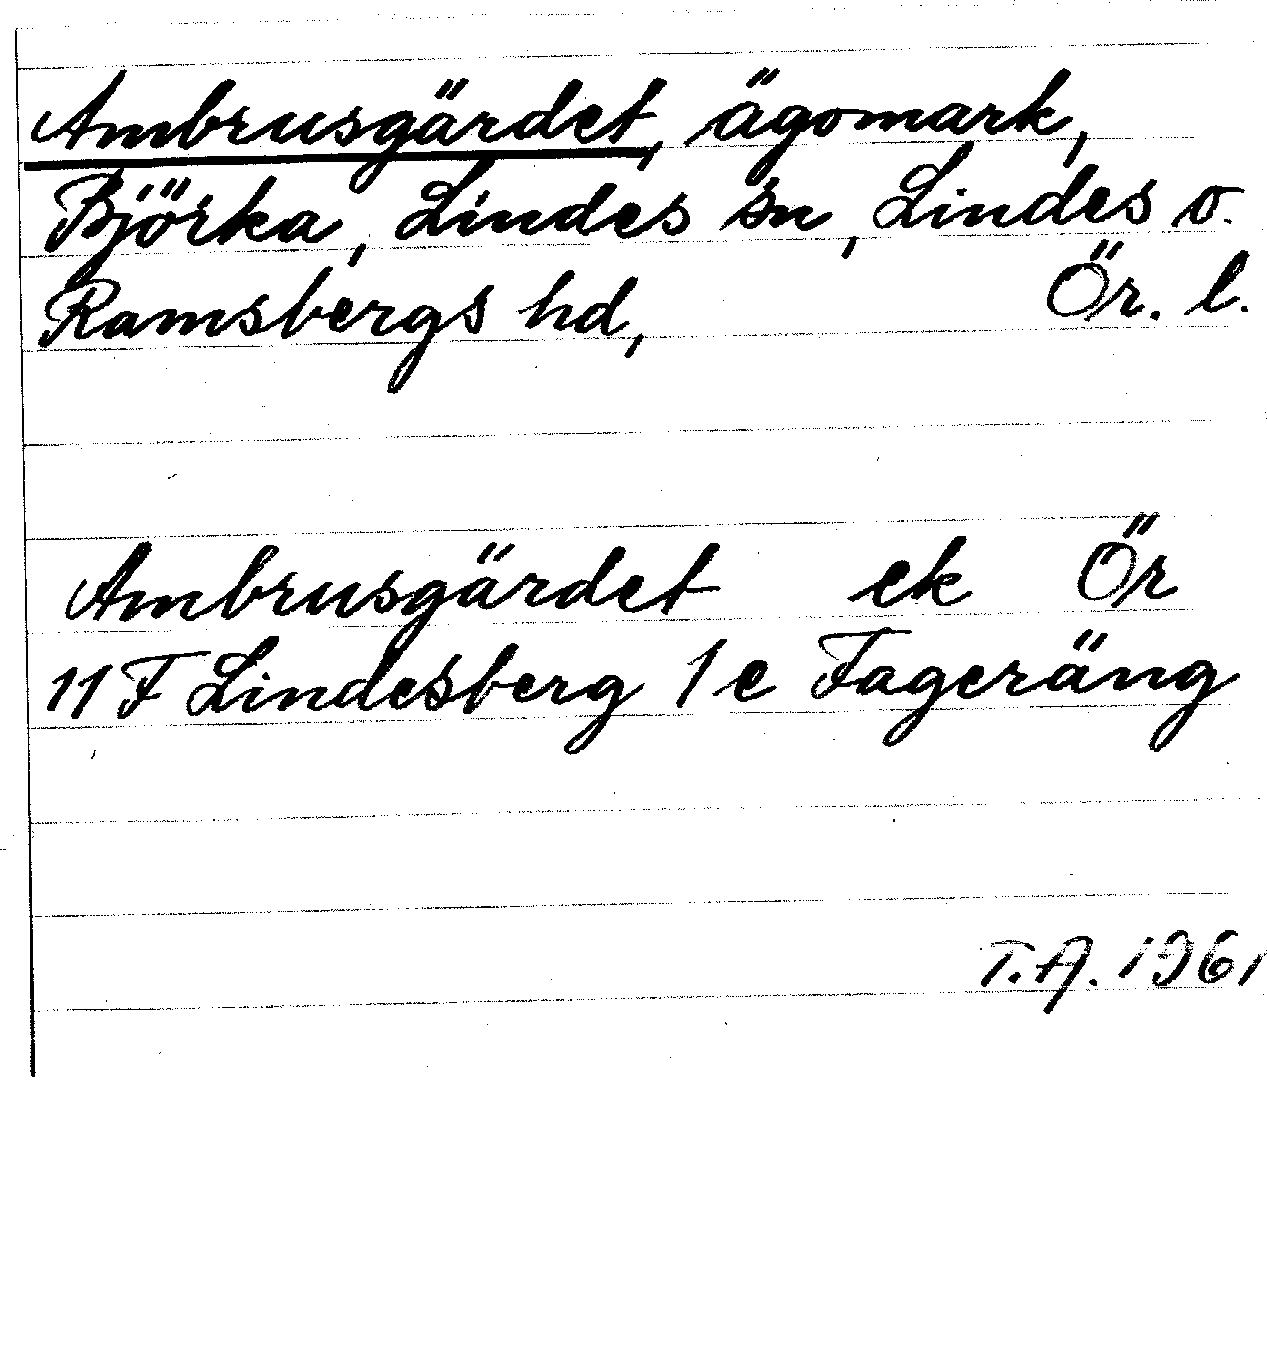 Ambrusgärdet, ägomark,
Björka, Lindes sn, Lindes o.
Ramsbergs hd, Ör. l.
Ambrusgärdet ek Ör
11 F Lindesberg 1 e Fageräng
T.A. 1961